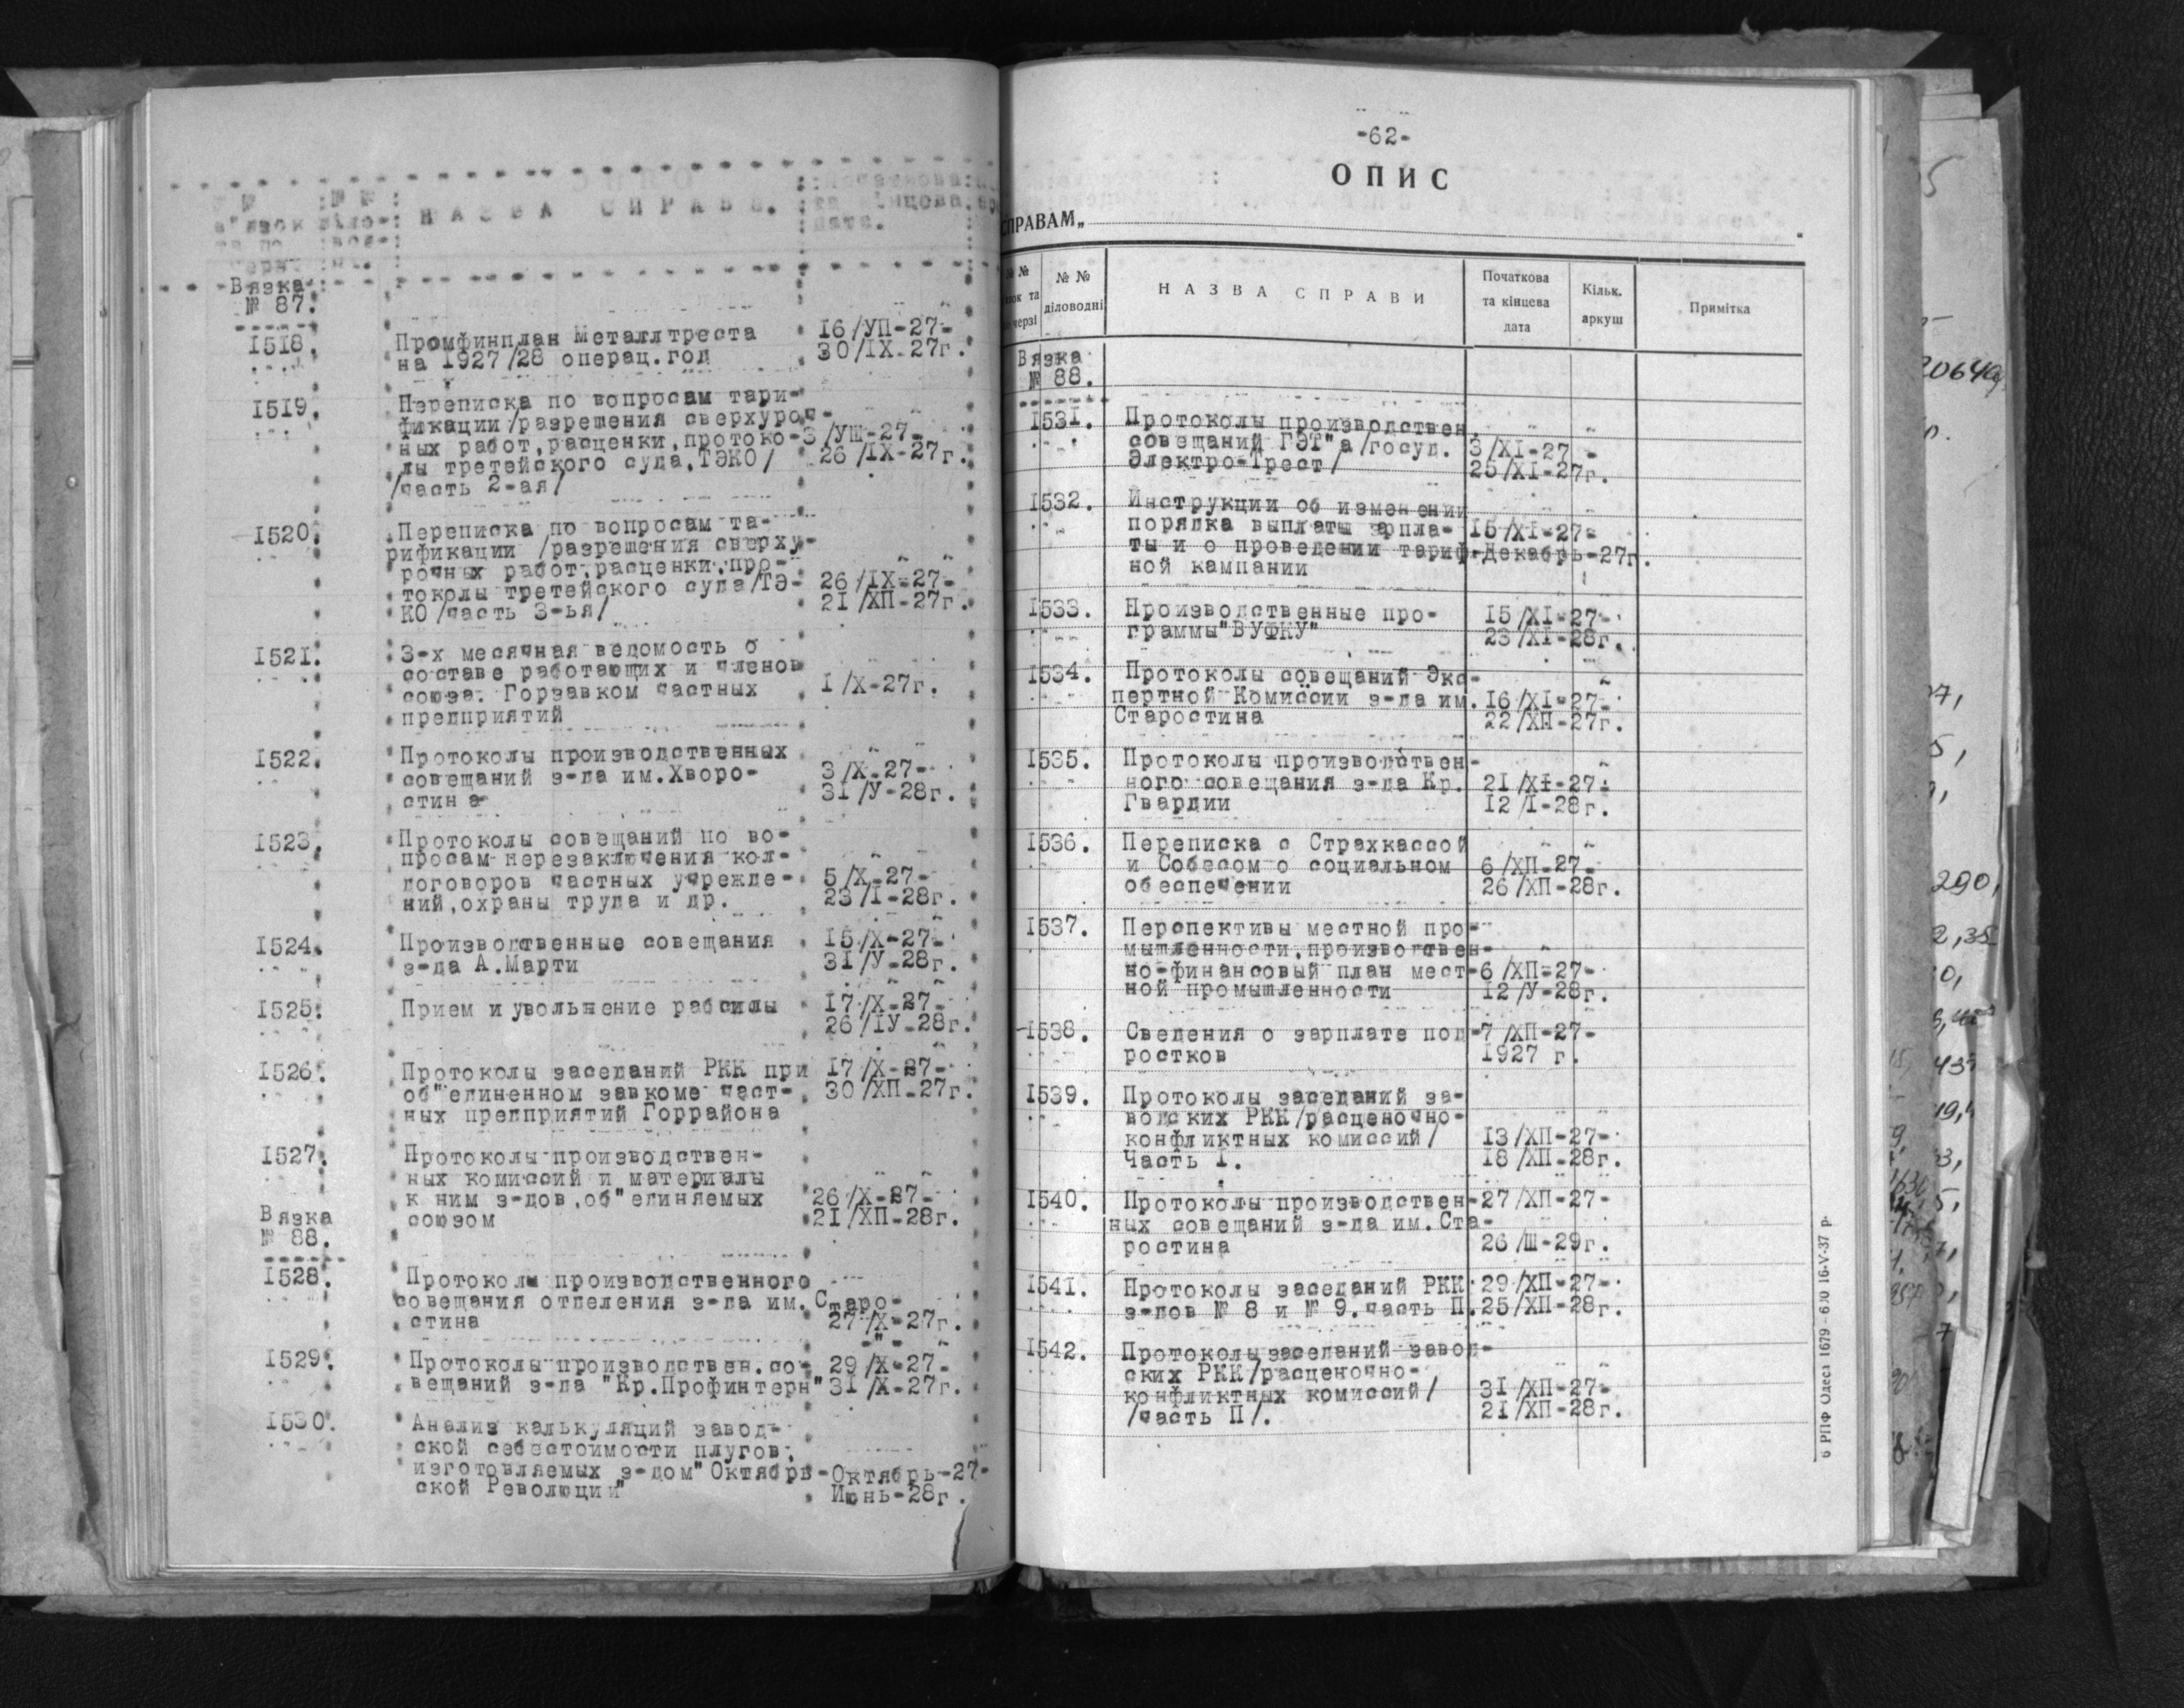 НАЗВА СПРАВЫ.
дата.
Вязка
№ 87.
1518.
Промфинплан Металлтреста
на 1927/28 операц.год
16/УП-27-
30/IX-27г.
1519.
Переписка по вопросам тари-
фикации/разрешения сверхуроч-
ных работ,расценки,протоко-
лы третейского суда,ТЭКО/
/часть 2-ая/
3/УШ-27-
26/IX-27г.
1520.
Переписка по вопросам та-
рификации /разрешения сверху-
рочных работ,расценки,про-
токолы третейского суда/ТЭ-
КО/часть 3-ья/
26/IX-27-
21/ХП-27г.
1521.
3-х месячная ведомость о
составе работающих и членов
союза. Горзавком частных
предприятий
1/X-27г.
1522.
Протоколы производственных
совещаний з-да им.Хворо-
стина
3/X-27-
31/У-28г.
1523.
Протоколы совещаний по во-
просам перезаключения кол-
договоров частных учрежде-
ний,охраны труда и др.
5/X-27-
23/I-28г.
1524.
Производственные совещания
з-да А.Марти
15/X-27-
31/У-28г.
1525.
Прием и увольнение рабсилы
17/X-27-
26/IУ-28г.
1526.
Протоколы заседаний РКК при
об"единенном завкоме част-
ных предприятий Горрайона
17/X-27-
30/ХП-27г.
1527.
Протоколы производствен-
ных комиссий и материалы
к ним з-дов,об"единяемых
союзом
26/X-27-
21/ХП-28г.
Вязка
№ 88.
1528.
Протоколы производственного
совещания отделения з-да им.Старо-
стина
27/X-27г.
1529.
Протоколы производствен.со-
вещаний з-да "Кр.Профинтерн"
29/X-27-
31/X-27г.
1530.
Анализ калькуляций завод-
ской себестоимости плугов,
изготовляемых з-дом"Октябрь-
ской Революции"
Октябрь-27-
Июнь-28г.
-62-
ОПИС
СПРАВАМ„
№ №
діловодні
НАЗВА СПРАВИ
Початкова
та кінцева
дата
Кільк.
аркуш
Примітка
Вязка
№ 88.
1531.
Протоколы производствен.
совещаний ГЭТ"а/госуд.
Электро-Трест/
3/XI-27 -
25/XI-27г.
1532.
Инструкции об изменении
порядка выплаты зарпла-
ты и о проведении тариф-
ной кампании
15/XI-27-
Декабрь-27г.
1533.
Производственные про-
граммы"ВУФКУ"
15/XI-27-
23/XI-28г.
1534.
Протоколы совещаний Экс-
пертной Комиссии з-да им.
Старостина
16/XI-27-
22/ХП-27г.
1535.
Протоколы производствен-
ного совещания з-да Кр.
Гвардии
21/XI-27-
12/I-28г.
1536.
Переписка с Страхкассой
и Собесом о социальном
обеспечении
6/ХП-27-
26/ХП-28г.
1537.
Перспективы местной про-
мышленности,производствен-
но-финансовый план мест-
ной промышленности
6/ХП-27-
12/У-28г.
1538.
Сведения о зарплате под-
ростков
7/ХП-27-
1927 г.
1539.
Протоколы заседаний за-
водских РКК/расценочно-
конфликтных комиссий/
Часть I.
13/ХП-27-
18/ХП-28г.
1540.
Протоколы производствен-
ных совещаний з-да им.Ста-
ростина
27/ХП-27-
26/Ш-29г.
1541.
Протоколы заседаний РКК
з-дов № 8 и № 9.часть П.
29/ХП-27-
25/ХП-28г.
1542.
Протоколы заседаний завод-
ских РКК/расценочно-
конфликтных комиссий/
/часть П/.
31/ХП-27-
21/ХП-28г.
РПФ Одеса 1679 - 16-V-37 р.